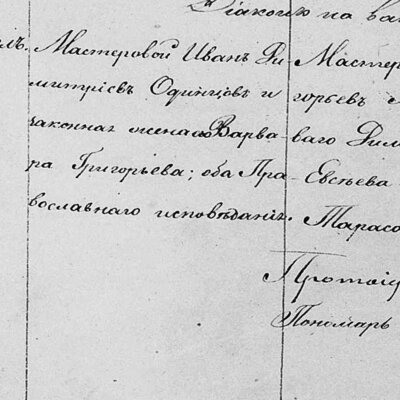 Діакономъ на ва
Мастеровой Иванъ Ди-
митріевъ Одинцовъ и
законная жена его Варва-
ра Григорьева; оба Пра-
вославнаго исповѣданія.
Мастер
горьевъ
ваго Дим
Евсѣева
Тарасо
Протоіе
Пономарь